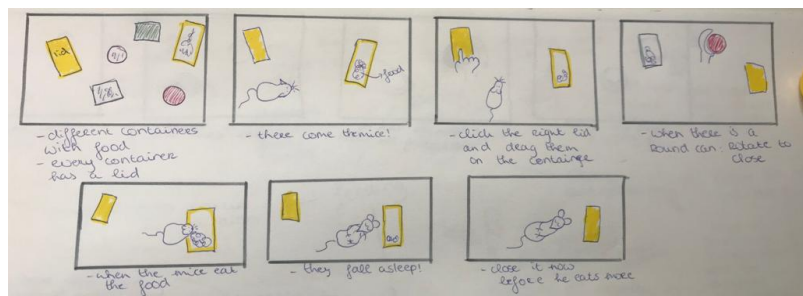 lid
food
- different containers
with food
- every container
has a lid
- there come the mice!
- click the right lid
and drag them
on the container
- when there is a
round can: rotate to
close
- when the mice eat
the food
- they fall asleep!
- close it now
before he eats more